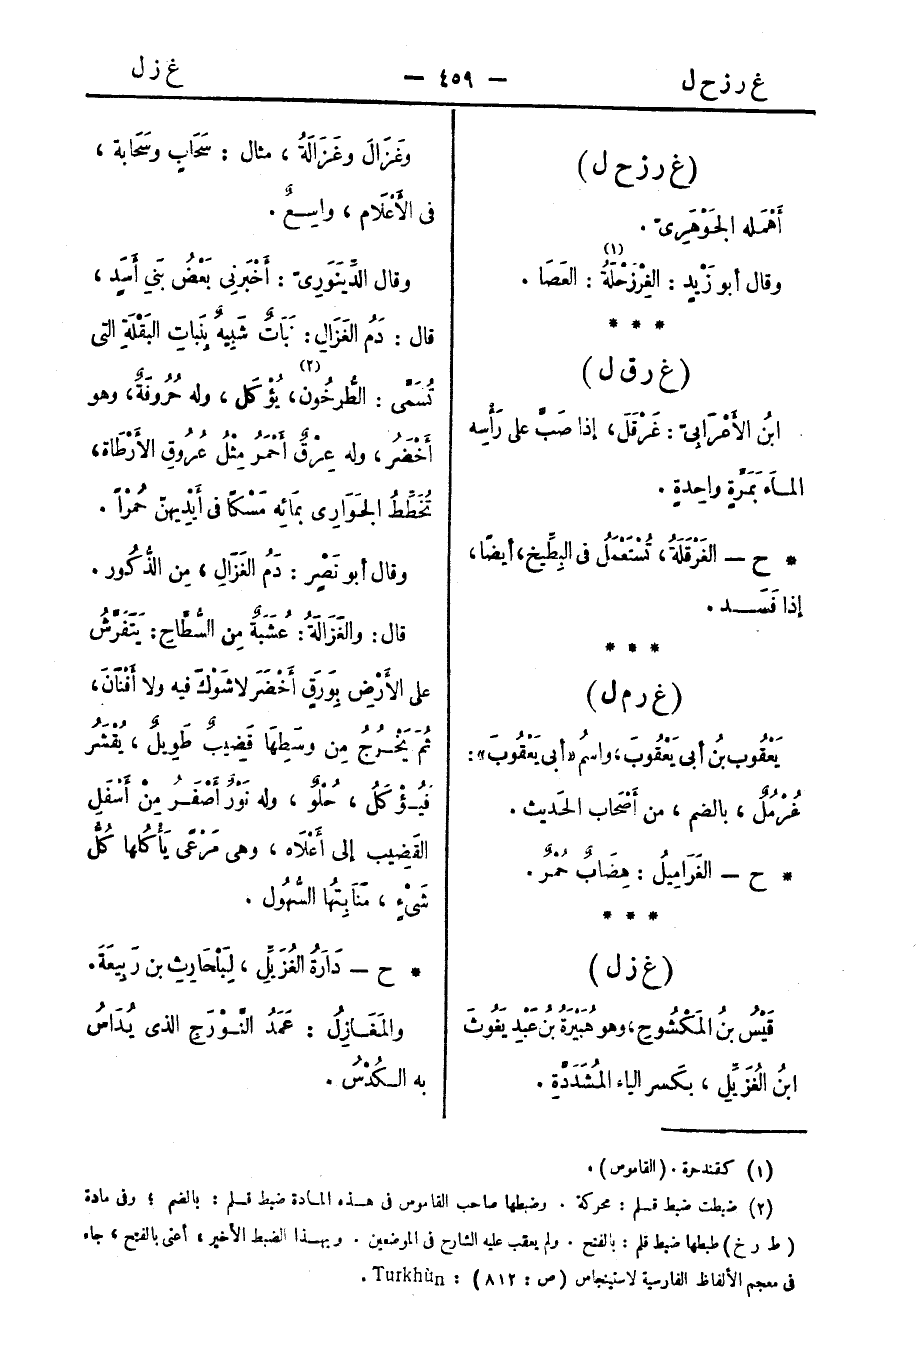 غ ر ز ح ل — ٤٥٩ — غ ز ل
(غ ر ز ح ل)
أَهْمَله الجَوْهَرِىّ .
وقال أبو زَيْدٍ : الغِرْزَحْلَةُ (١) : العَصَا .
* * *
(غ ر ق ل)
ابنُ الأَعْرَابِىّ : غَرْقَلَ ، إذا صَبَّ على رَأْسِه
المـاءَ بمَرَّةٍ واحِدةٍ .
* ح — الغَرْقَلَةُ ، تُسْتَعْمَلُ فى البِطِّيخ ، أيضًا ،
إذا فَسَــد .
* * *
(غ ر م ل)
يَعْقُوب بنُ أبى يَعْقُوبَ ، واسمُ «أبى يَعْقُوبَ» :
غُرْمُلٌ ، بالضم ، من أَصْحاب الحَديث .
* ح — الغَرَامِيلُ : هِضَابٌ حُمْرٌ .
* * *
(غ ز ل)
قَيْسُ بنُ المَكْشُوحِ ، وهو هُبَيْرَةُ بن عَبْدِ يَغُوثَ
ابنُ الغُزَيِّلِ ، بكَسر الياء المُشَدَّدَةِ .
وغَزَالَ وغَزَالَةُ ، مثال : سَحَابٍ وسَحَابة ،
فى الأَعْلَام ، واسِــعٌ .
وقال الدِّينَوَرِىّ : أَخْبَرنِى بَعْضُ بَنِى أَسَدٍ ،
قال : دَمُ الغَزَالِ : نَبَاتٌ شَبِيهٌ بِنَباتِ البَقْلَةِ التى
تُسَمَّى : الطَّرخُون (٢) ، يُؤْكَل ، وله حُرُوفَةٌ ، وهو
أَخْضَرُ ، وله عِرْقٌ أَحْمَرُ مِثْلُ عُرُوقِ الأَرْطَاة ،
تُخَطِّطُ الجَوَارِى بمَائِه مَسَكًا فى أَيْدِيهنّ حُمْراً .
وقال أبو نَصْرٍ : دَمُ الغَزَالِ ، مِن الذُّكُور .
قال : والغَزَالَةُ : عُشْبَةٌ مِن السُّطَّاحِ : يَتَفَرَّشُ
على الأَرْضِ بِوَرَقٍ أَخْضَرَ لا شَوْكَ فيه ولا أَفْنَانَ ،
ثُمّ يَخْــرُجُ مِن وسَطِهَا قَضِيبٌ طَوِيلٌ ، يُقْشَر
فَيُــؤْكَلُ ، حُلْوٌ ، وله نَوْرٌ أَصْفَــرُ مِنْ أَسْفَلِ
القَضِيب إلى أَعْلَاه ، وهى مَرْعًى يَأْكُلها كُلُّ
شَىْءٍ ، مَنَابِتُها السُّهُول .
* ح — دَارَةُ الغُزَيِّلِ ، لِبَلْحَارِثِ بن رَبِيعَةَ .
والمَغَـازِلُ : عَمَدُ النَّــوْرَجِ الذى يُدَاسُ
به الـكُدْسُ .
(١) كقندحرة . (القاموس) .
(٢) ضبطت ضبط قــلم : محركة . وضبطها صاحب القاموس فى هــذه المـادة ضبط قــلم : بالضم ؛ وفى مادة
( ط ر خ ) ضبطها ضبط قلم : بالفتح . ولم يعقب عليه الشارح فى الموضعين . وبهــذا الضبط الأخير ، أعنى بالفتح ، جاء
فى معجم الألفاظ الفارسية لاستينجاس (ص : ٨١٢) : Turkhùn .